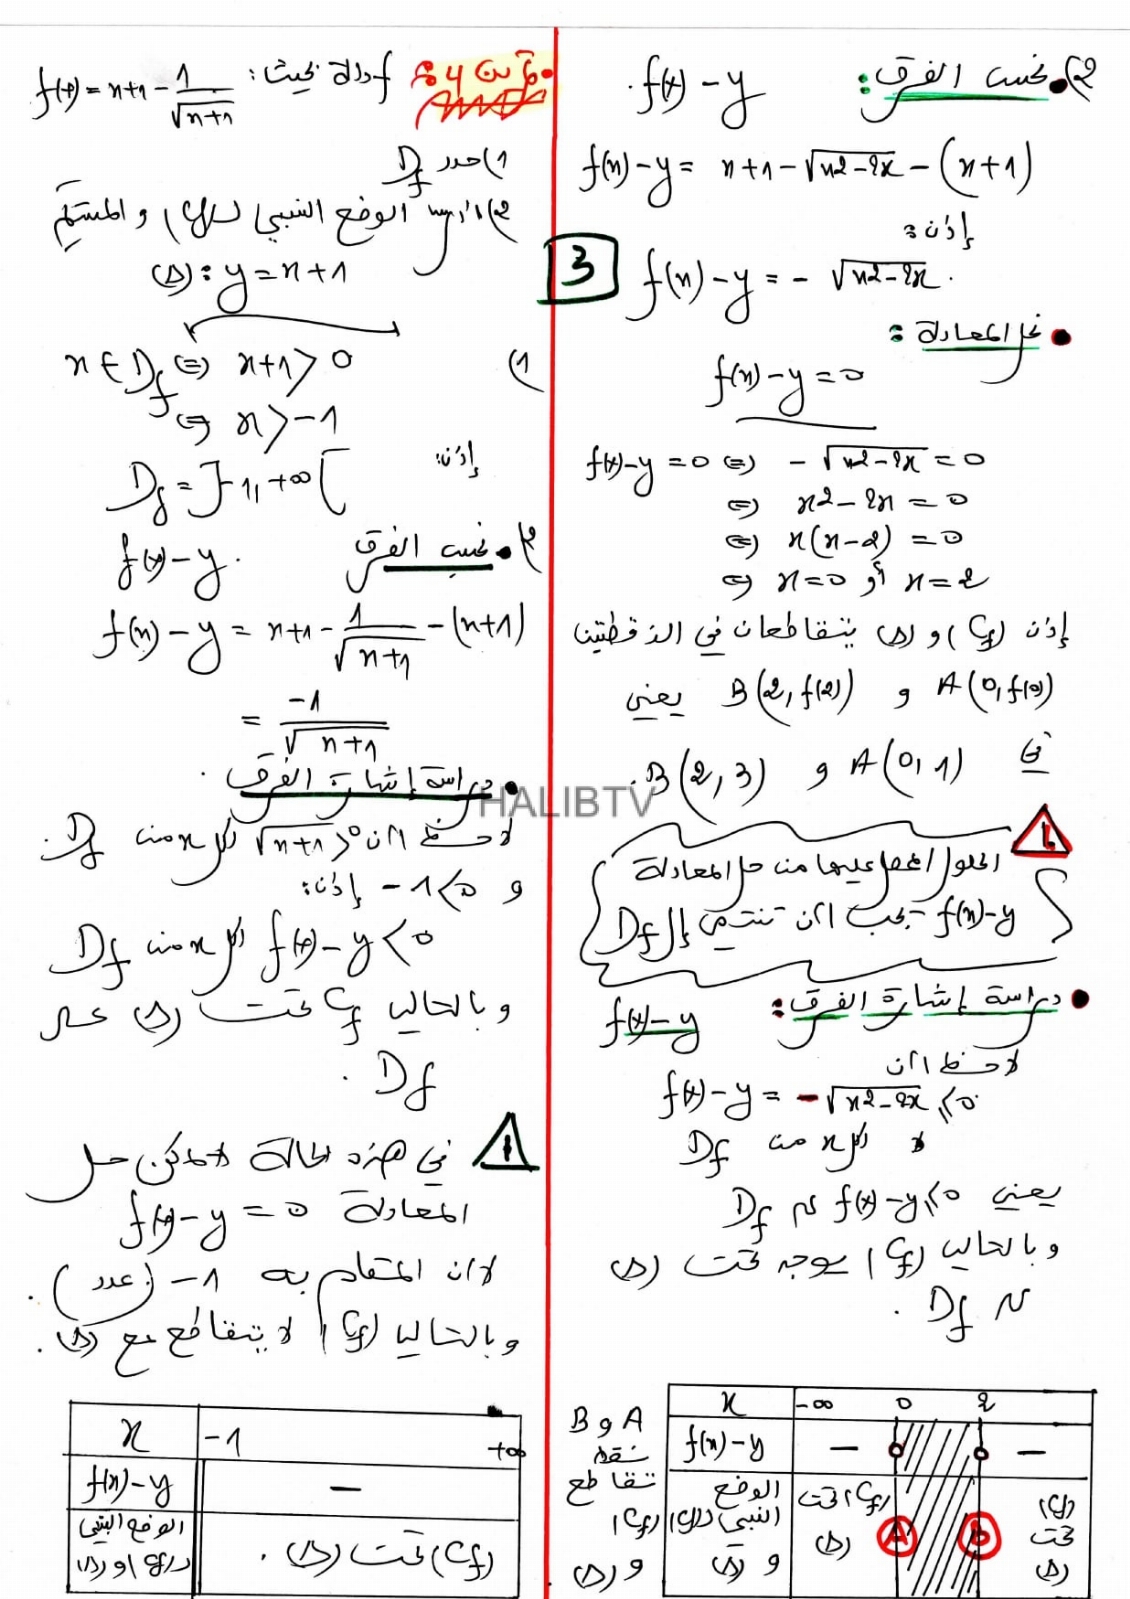 2) • نحسب الفرق : f(x) - y.
f(x) - y = x+1 - √x2-2x - (x+1)
إذن:
f(x) - y = - √x2-2x.
• نحل المعادلة :
f(x) - y = 0
f(x)-y = 0 ⇔ - √x2-2x = 0
⇔ x2 - 2x = 0
⇔ x(x-2) = 0
⇔ x=0 أو x=2
إذن (Cf) و (Δ) يتقاطعان في النقطتين
A(0, f(0)) و B(2, f(2)) يعني
في A(0, 1) و B(2, 3).
الحلول المحصل عليها من حل المعادلة
f(x)-y يجب أن تنتمي إلى Df
• دراسة إشارة الفرق : f(x)-y
لاحظ أن
f(x)-y = -√x2-2x ≤ 0
لكل x من Df
يعني f(x)-y ≤ 0 على Df
وبالتالي (Cf) يوجد تحت (Δ)
على Df .
x -∞ 0 2
f(x)-y - -
الوضع النسبي ل(Cf) و (Δ)
(Cf) تحت (Δ)
A B
(Cf) تحت (Δ)
A و B
نقط
تقاطع
(Cf)
و (Δ)
3
تمرين 4 : f دالة بحيث : f(x) = x+1 - 1/√x+1
1) حدد Df
2) أدرس الوضع النسبي ل (Cf) و المستقيم
(Δ) : y = x+1
1) x ∈ Df ⇔ x+1 > 0
⇔ x > -1
إذن: Df = ]-1, +∞[
2) • نحسب الفرق f(x)-y.
f(x) - y = x+1 - 1/√x+1 - (x+1)
= -1/√x+1
• دراسة إشارة الفرق .
HALIBTV
لاحظ أن √x+1 > 0 لكل x من Df.
و -1 < 0 إذن:
f(x)-y < 0 لكل x من Df
وبالتالي Cf تحت (Δ) على
Df .
في هذه الحالة لا يمكن حل
المعادلة f(x)-y = 0
لأن المقام به -1 (عدد) .
وبالتالي (Cf) لا يتقاطع مع (Δ) .
x -1 +∞
f(x)-y -
الوضع النسبي
ل(Cf) و (Δ)
(Cf) تحت (Δ) .